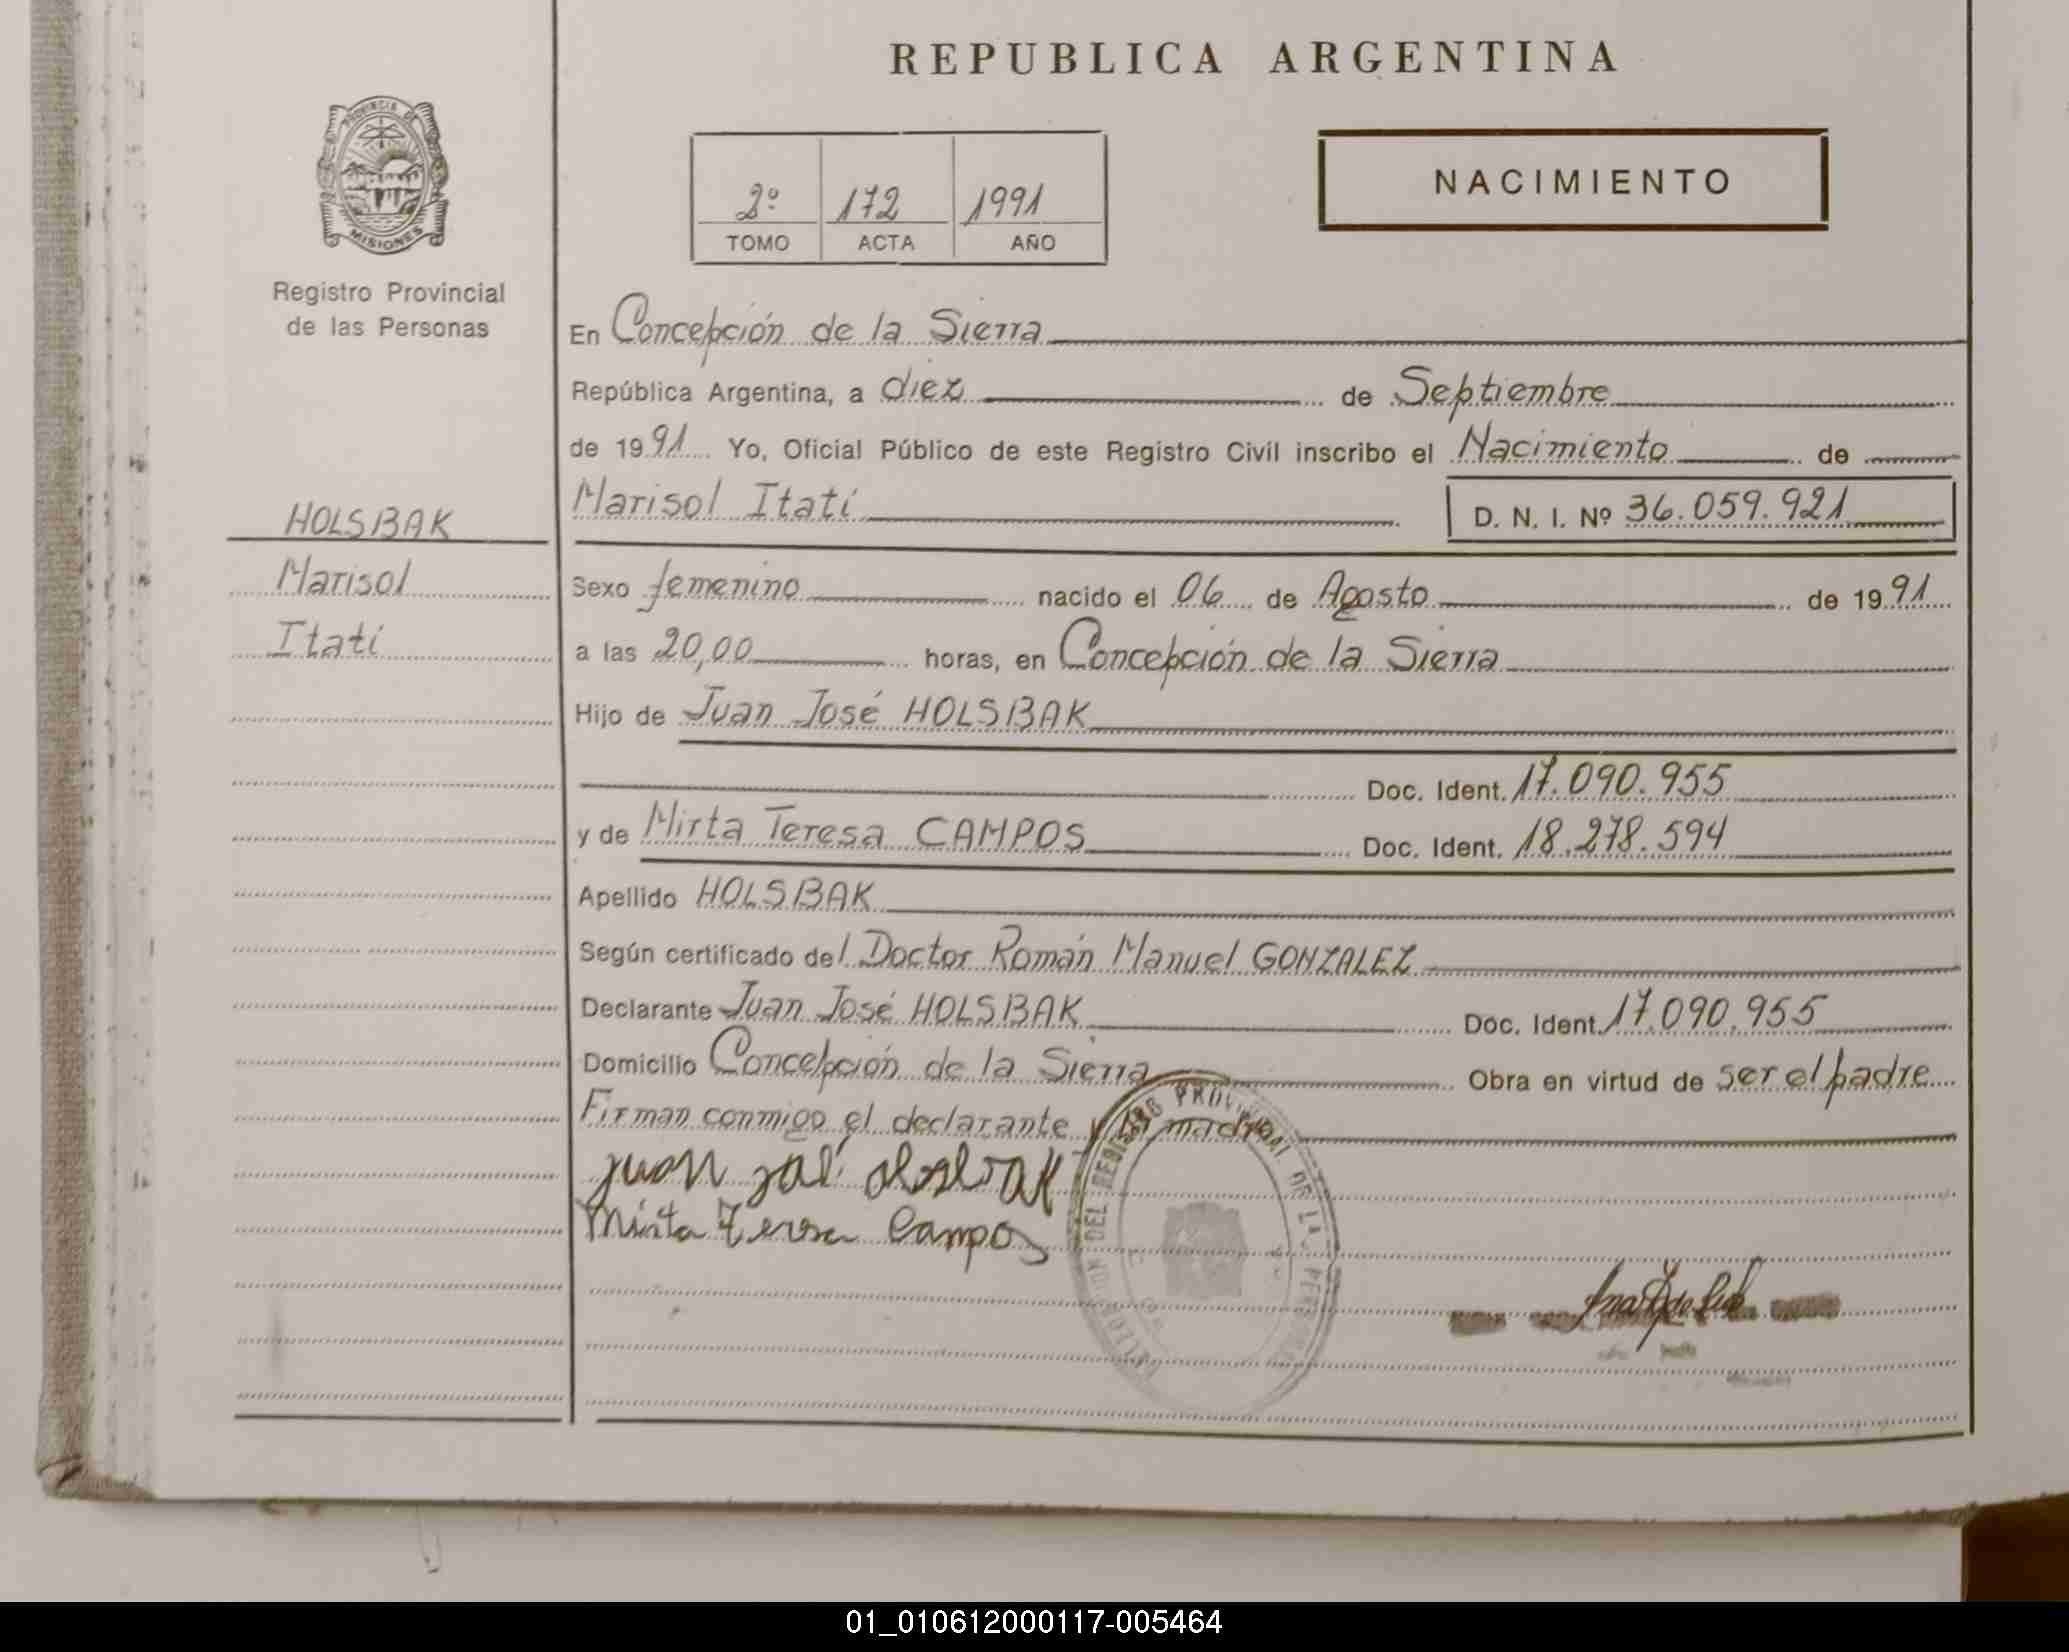 REPUBLICA ARGENTINA
PROVINCIA DE
MISIONES
Registro Provincial
de las Personas
2º 172 1991
TOMO ACTA AÑO
NACIMIENTO
HOLSBAK
Marisol
Itatí
En Concepción de la Sierra
República Argentina, a diez de Septiembre
de 1991 Yo, Oficial Público de este Registro Civil inscribo el Nacimiento de
Marisol Itatí D. N. I. Nº 36.059.921
Sexo femenino nacido el 06 de Agosto de 1991
a las 20,00 horas, en Concepción de la Sierra
Hijo de Juan José HOLSBAK
Doc. Ident. 17.090.955
y de Mirta Teresa CAMPOS Doc. Ident. 18.278.594
Apellido HOLSBAK
Según certificado del Doctor Román Manuel GONZALEZ
Declarante Juan José HOLSBAK Doc. Ident. 17.090.955
Domicilio Concepción de la Sierra Obra en virtud de ser el padre
Firman conmigo el declarante y la madre
Juan José Holsbak
Mirta Teresa Campos
DEL REGISTRO PROVINCIAL DE LAS PERSONAS
01_010612000117-005464